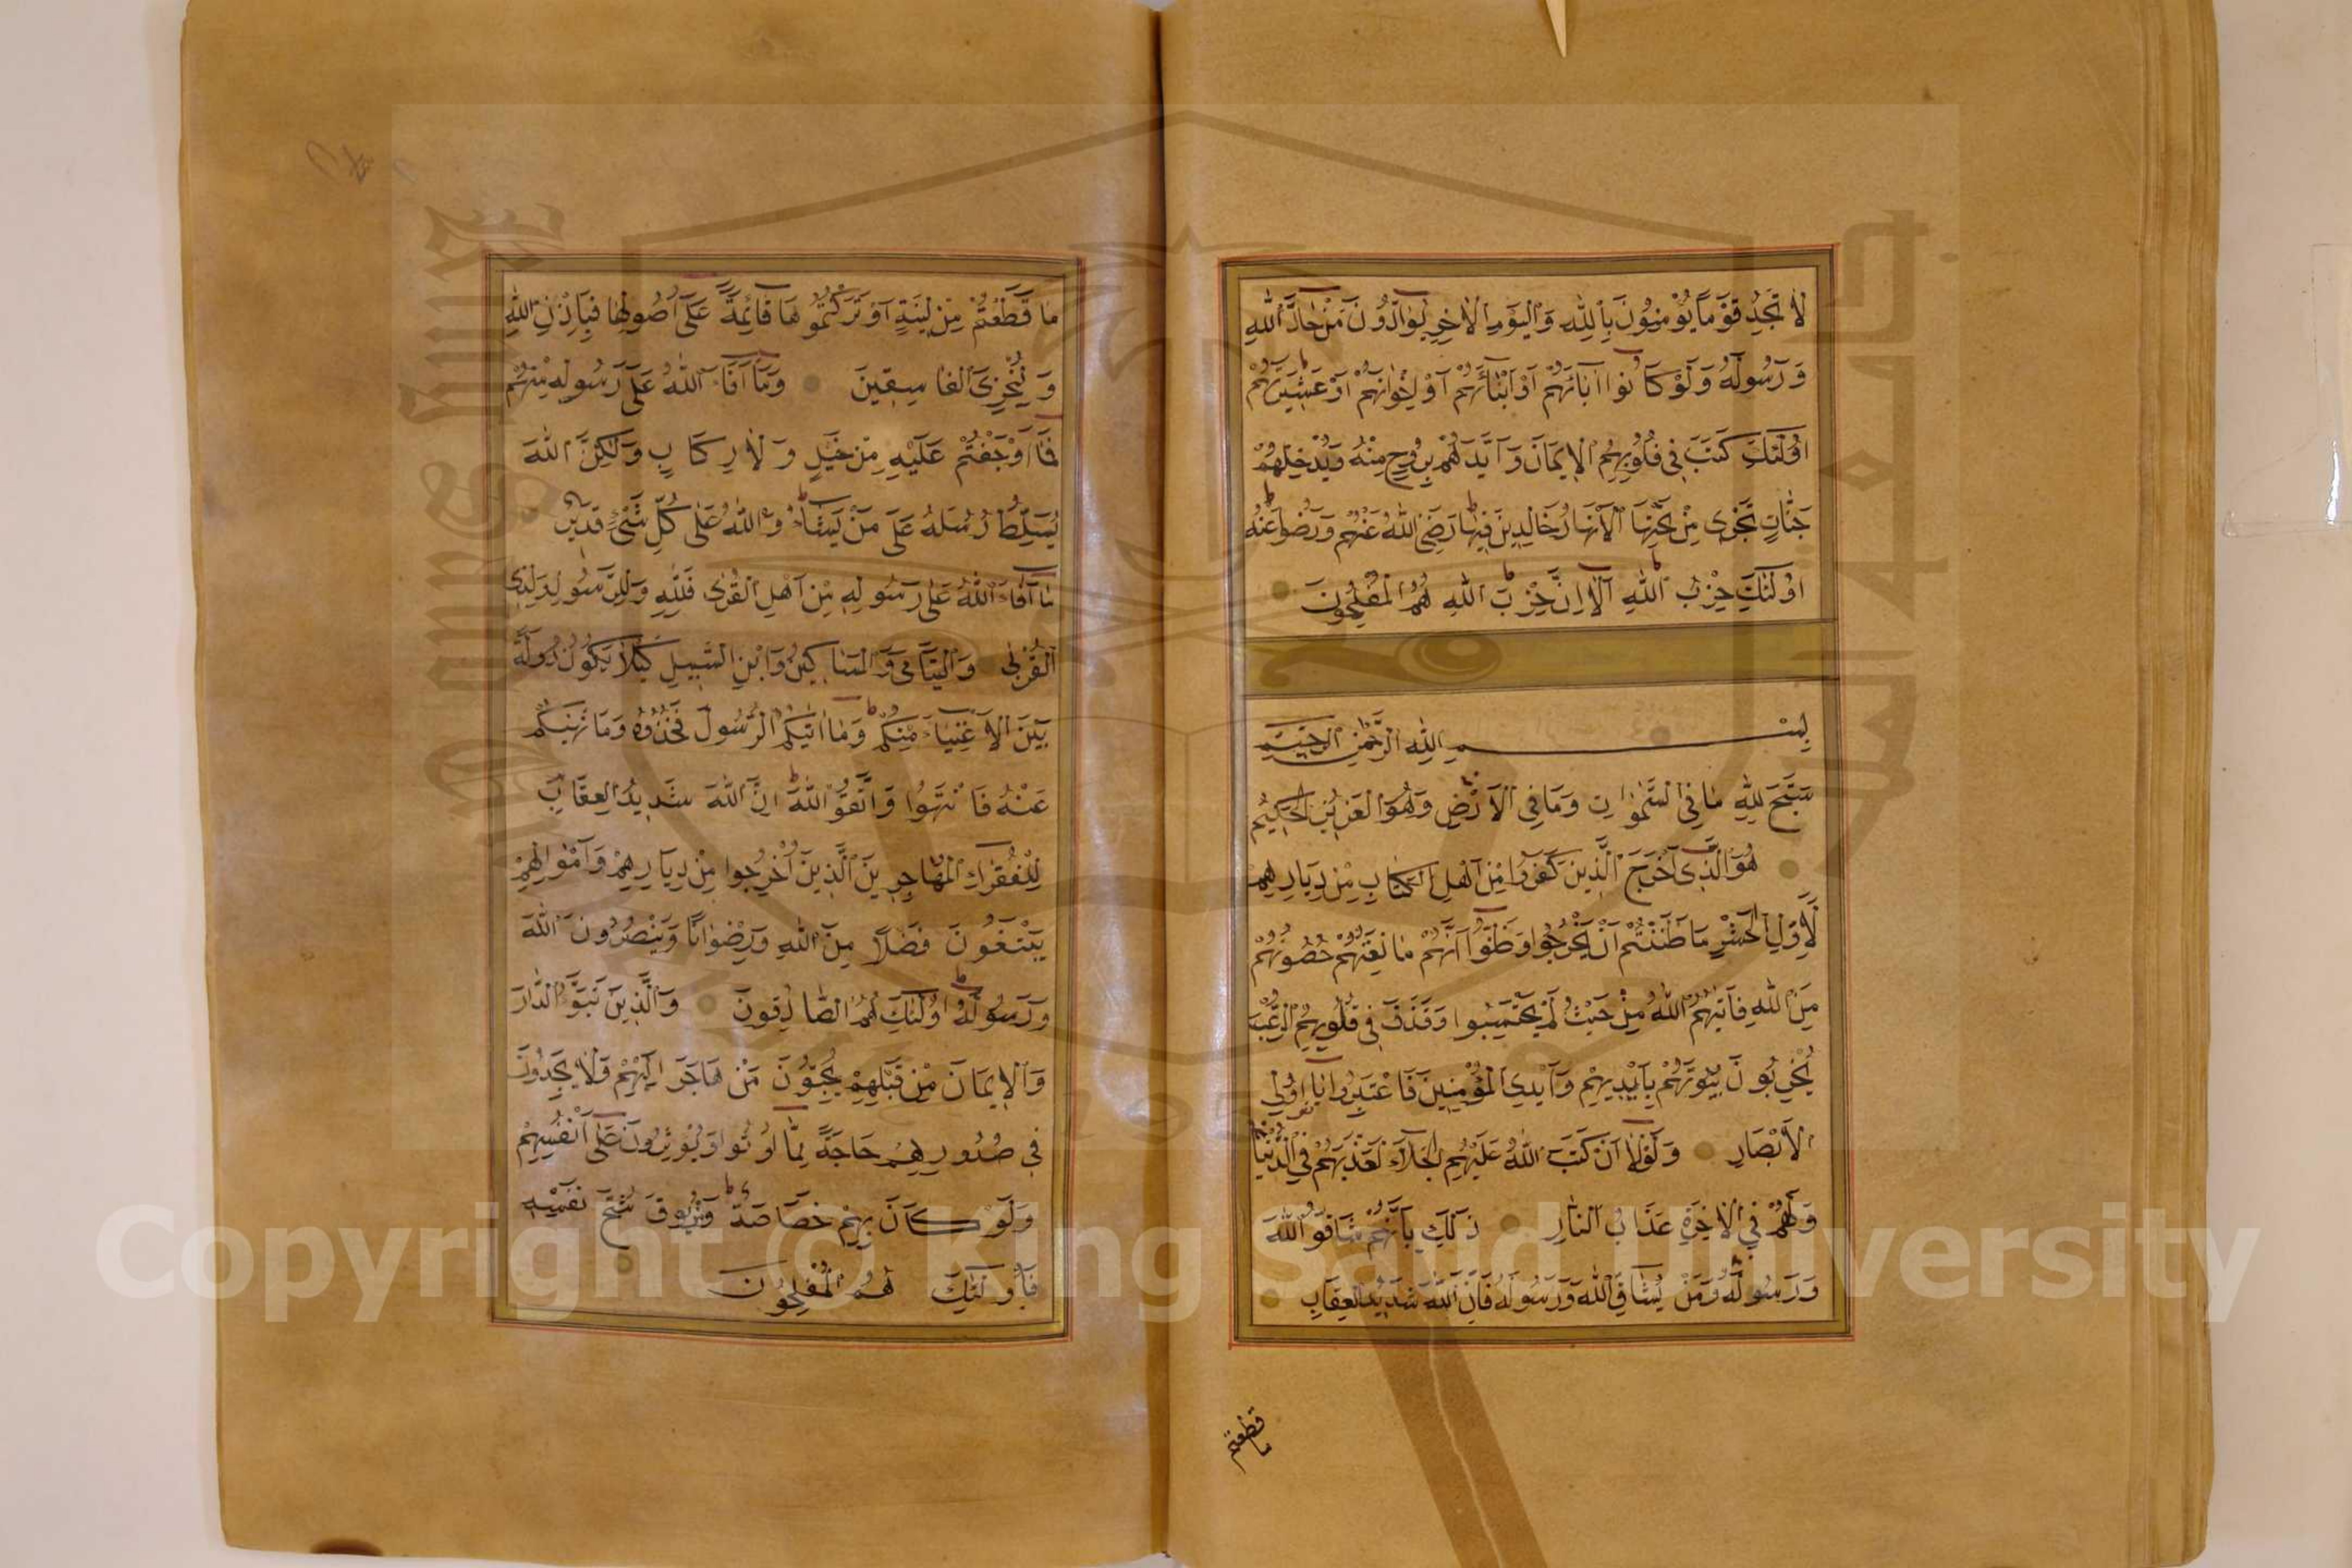 لَا تَجِدُ قَوْمًا يُؤْمِنُونَ بِاللَّهِ وَالْيَوْمِ الْآخِرِ يُوَادُّونَ مَنْ حَادَّ اللَّهَ
وَرَسُولَهُ وَلَوْ كَانُوا آبَاءَهُمْ أَوْ أَبْنَاءَهُمْ أَوْ إِخْوَانَهُمْ أَوْ عَشِيرَتَهُمْ
أُولَئِكَ كَتَبَ فِي قُلُوبِهِمُ الْإِيمَانَ وَأَيَّدَهُمْ بِرُوحٍ مِنْهُ وَيُدْخِلُهُمْ
جَنَّاتٍ تَجْرِي مِنْ تَحْتِهَا الْأَنْهَارُ خَالِدِينَ فِيهَا رَضِيَ اللَّهُ عَنْهُمْ وَرَضُوا عَنْهُ
أُولَئِكَ حِزْبُ اللَّهِ أَلَا إِنَّ حِزْبَ اللَّهِ هُمُ الْمُفْلِحُونَ
بِسْمِ اللَّهِ الرَّحْمَنِ الرَّحِيمِ
سَبَّحَ لِلَّهِ مَا فِي السَّمَوَاتِ وَمَا فِي الْأَرْضِ وَهُوَ الْعَزِيزُ الْحَكِيمُ
هُوَ الَّذِي أَخْرَجَ الَّذِينَ كَفَرُوا مِنْ أَهْلِ الْكِتَابِ مِنْ دِيَارِهِمْ
لِأَوَّلِ الْحَشْرِ مَا ظَنَنْتُمْ أَنْ يَخْرُجُوا وَظَنُّوا أَنَّهُمْ مَانِعَتُهُمْ حُصُونُهُمْ
مِنَ اللَّهِ فَأَتَيهُمُ اللَّهُ مِنْ حَيْثُ لَمْ يَحْتَسِبُوا وَقَذَفَ فِي قُلُوبِهِمُ الرُّعْبَ
يُخْرِبُونَ بُيُوتَهُمْ بِأَيْدِيهِمْ وَأَيْدِي الْمُؤْمِنِينَ فَاعْتَبِرُوا يَا أُولِي
الْأَبْصَارِ وَلَوْلَا أَنْ كَتَبَ اللَّهُ عَلَيْهِمُ الْجَلَاءَ لَعَذَّبَهُمْ فِي الدُّنْيَا
وَلَهُمْ فِي الْآخِرَةِ عَذَابُ النَّارِ ذَلِكَ بِأَنَّهُمْ شَاقُّوا اللَّهَ
وَرَسُولَهُ وَمَنْ يُشَاقِّ اللَّهَ وَرَسُولَهُ فَإِنَّ اللَّهَ شَدِيدُ الْعِقَابِ
ما قطعتم
مَا قَطَعْتُمْ مِنْ لِينَةٍ أَوْ تَرَكْتُمُوهَا قَائِمَةً عَلَى أُصُولِهَا فَبِإِذْنِ اللَّهِ
وَلِيُخْزِيَ الْفَاسِقِينَ وَمَا أَفَاءَ اللَّهُ عَلَى رَسُولِهِ مِنْهُمْ
فَمَا أَوْجَفْتُمْ عَلَيْهِ مِنْ خَيْلٍ وَلَا رِكَابٍ وَلَكِنَّ اللَّهَ
يُسَلِّطُ رُسُلَهُ عَلَى مَنْ يَشَاءُ وَاللَّهُ عَلَى كُلِّ شَيْءٍ قَدِيرٌ
مَا أَفَاءَ اللَّهُ عَلَى رَسُولِهِ مِنْ أَهْلِ الْقُرَى فَلِلَّهِ وَلِلرَّسُولِ وَلِذِي
الْقُرْبَى وَالْيَتَامَى وَالْمَسَاكِينِ وَابْنِ السَّبِيلِ كَيْلَا يَكُونَ دُولَةً
بَيْنَ الْأَغْنِيَاءِ مِنْكُمْ وَمَا آتَيكُمُ الرَّسُولُ فَخُذُوهُ وَمَا نَهَيكُمْ
عَنْهُ فَانْتَهُوا وَاتَّقُوا اللَّهَ إِنَّ اللَّهَ شَدِيدُ الْعِقَابِ
لِلْفُقَرَاءِ الْمُهَاجِرِينَ الَّذِينَ أُخْرِجُوا مِنْ دِيَارِهِمْ وَأَمْوَالِهِمْ
يَبْتَغُونَ فَضْلًا مِنَ اللَّهِ وَرِضْوَانًا وَيَنْصُرُونَ اللَّهَ
وَرَسُولَهُ أُولَئِكَ هُمُ الصَّادِقُونَ وَالَّذِينَ تَبَوَّؤُ الدَّارَ
وَالْإِيمَانَ مِنْ قَبْلِهِمْ يُحِبُّونَ مَنْ هَاجَرَ إِلَيْهِمْ وَلَا يَجِدُونَ
فِي صُدُورِهِمْ حَاجَةً مِمَّا أُوتُوا وَيُؤْثِرُونَ عَلَى أَنْفُسِهِمْ
وَلَوْ كَانَ بِهِمْ خَصَاصَةٌ وَمَنْ يُوقَ شُحَّ نَفْسِهِ
فَأُولَئِكَ هُمُ الْمُفْلِحُونَ
Copyright © King Saud University